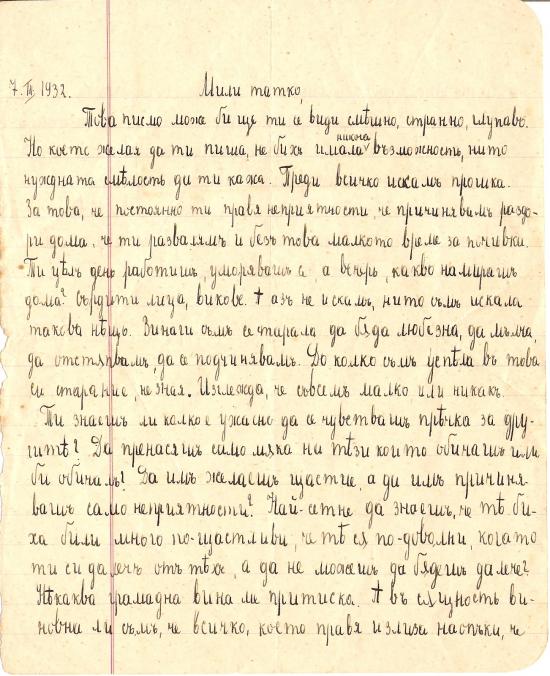 7.IX.1932.
Мили татко,
Това писмо може би ще ти се види смѣшно, странно, глупаво.
Но което желая да ти пиша, не бихъ имала никога възможность, нито
нуждната смѣлость да ти кажа. Преди всичко искамъ прошка.
За това, че постоянно ти правя неприятности, че причинявамъ раздо-
ри дома, че ти развалямъ и безъ това малкото време за почивка.
Ти цѣлъ день работишъ, уморявашъ се, а вечерь, какво намирашъ
дома? Сърдити лица, викове. А азъ не искамъ, нито съмъ искала
такова нѣщо. Винаги съмъ се старала да бѫда любезна, да мълча,
да отстѫпвамъ, да се подчинявамъ. До колко съмъ успѣла въ това
си старание, не зная. Изглежда, че съвсемъ малко или никакъ.
Ти знаешъ ли колко е ужасно да се чувствашъ прѣчка за дру-
гитѣ? Да пренасяшъ само мѫка на тѣзи които обичашъ или
би обичалъ? Да имъ желаешъ щастие, а да имъ причиня-
вашъ само неприятности? Най-сетне да знаешъ, че тѣ би-
ха били много по-щастливи, че тѣ сѫ по-доволни, когато
ти си далечъ отъ тѣхъ, а да не можешъ да бѫдешъ далече?
Нѣкаква грамадна вина ме притиска. А въ сѫщность ви-
новна ли съмъ, че всичко, което правя излиза наопъки, че